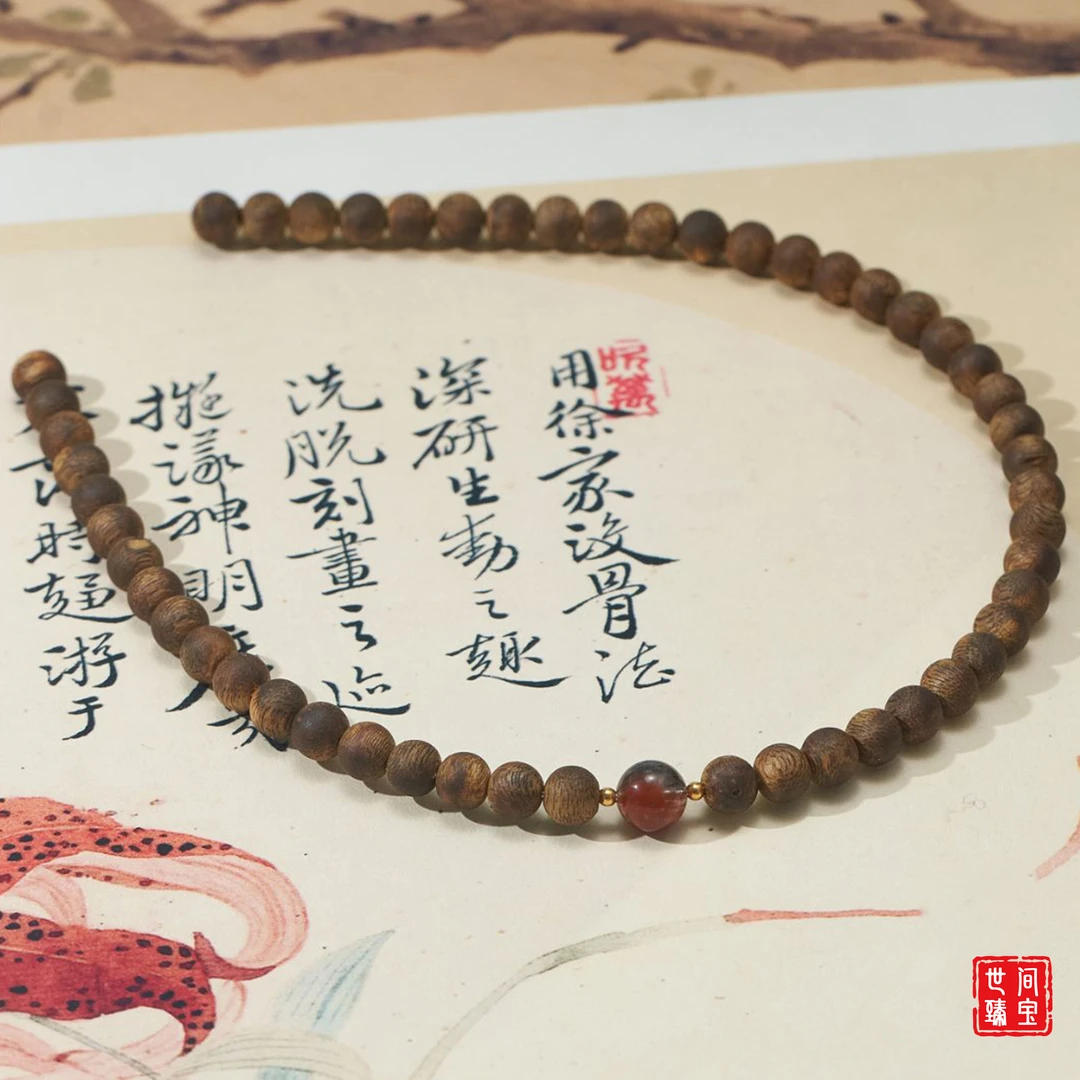 用徐家没骨法
深研生動之趣
洗脱刻畫之迹
神明
時游于
世间
臻宝